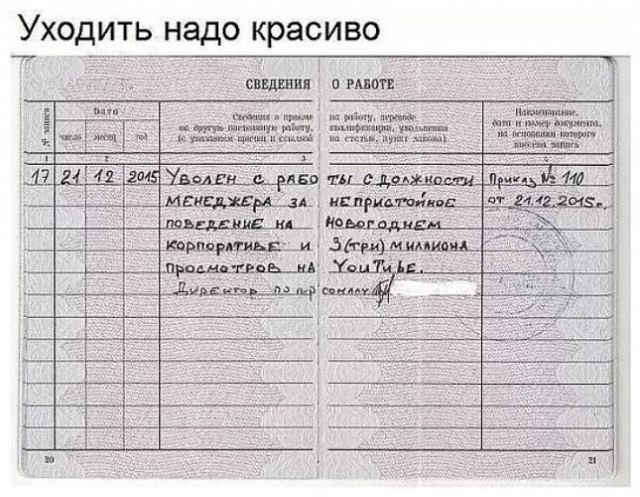 Уходить надо красиво
СВЕДЕНИЯ О РАБОТЕ
№ записи
Дата
Сведения о приеме на работу, переводе
на другую постоянную работу, квалификации, увольнении
(с указанием причин и ссылкой на статью, пункт закона)
Наименование,
дата и номер документа,
на основании которого
внесена запись
число месяц год
1 2 3 4
17 21 12 2015 Уволен с работы с должности Приказ № 110
менеджера за непристойное от 21.12.2015г.
поведение на новогоднем
корпоративе и 3(три) миллиона
просмотров на YouTube.
Директор по персоналу
20 21